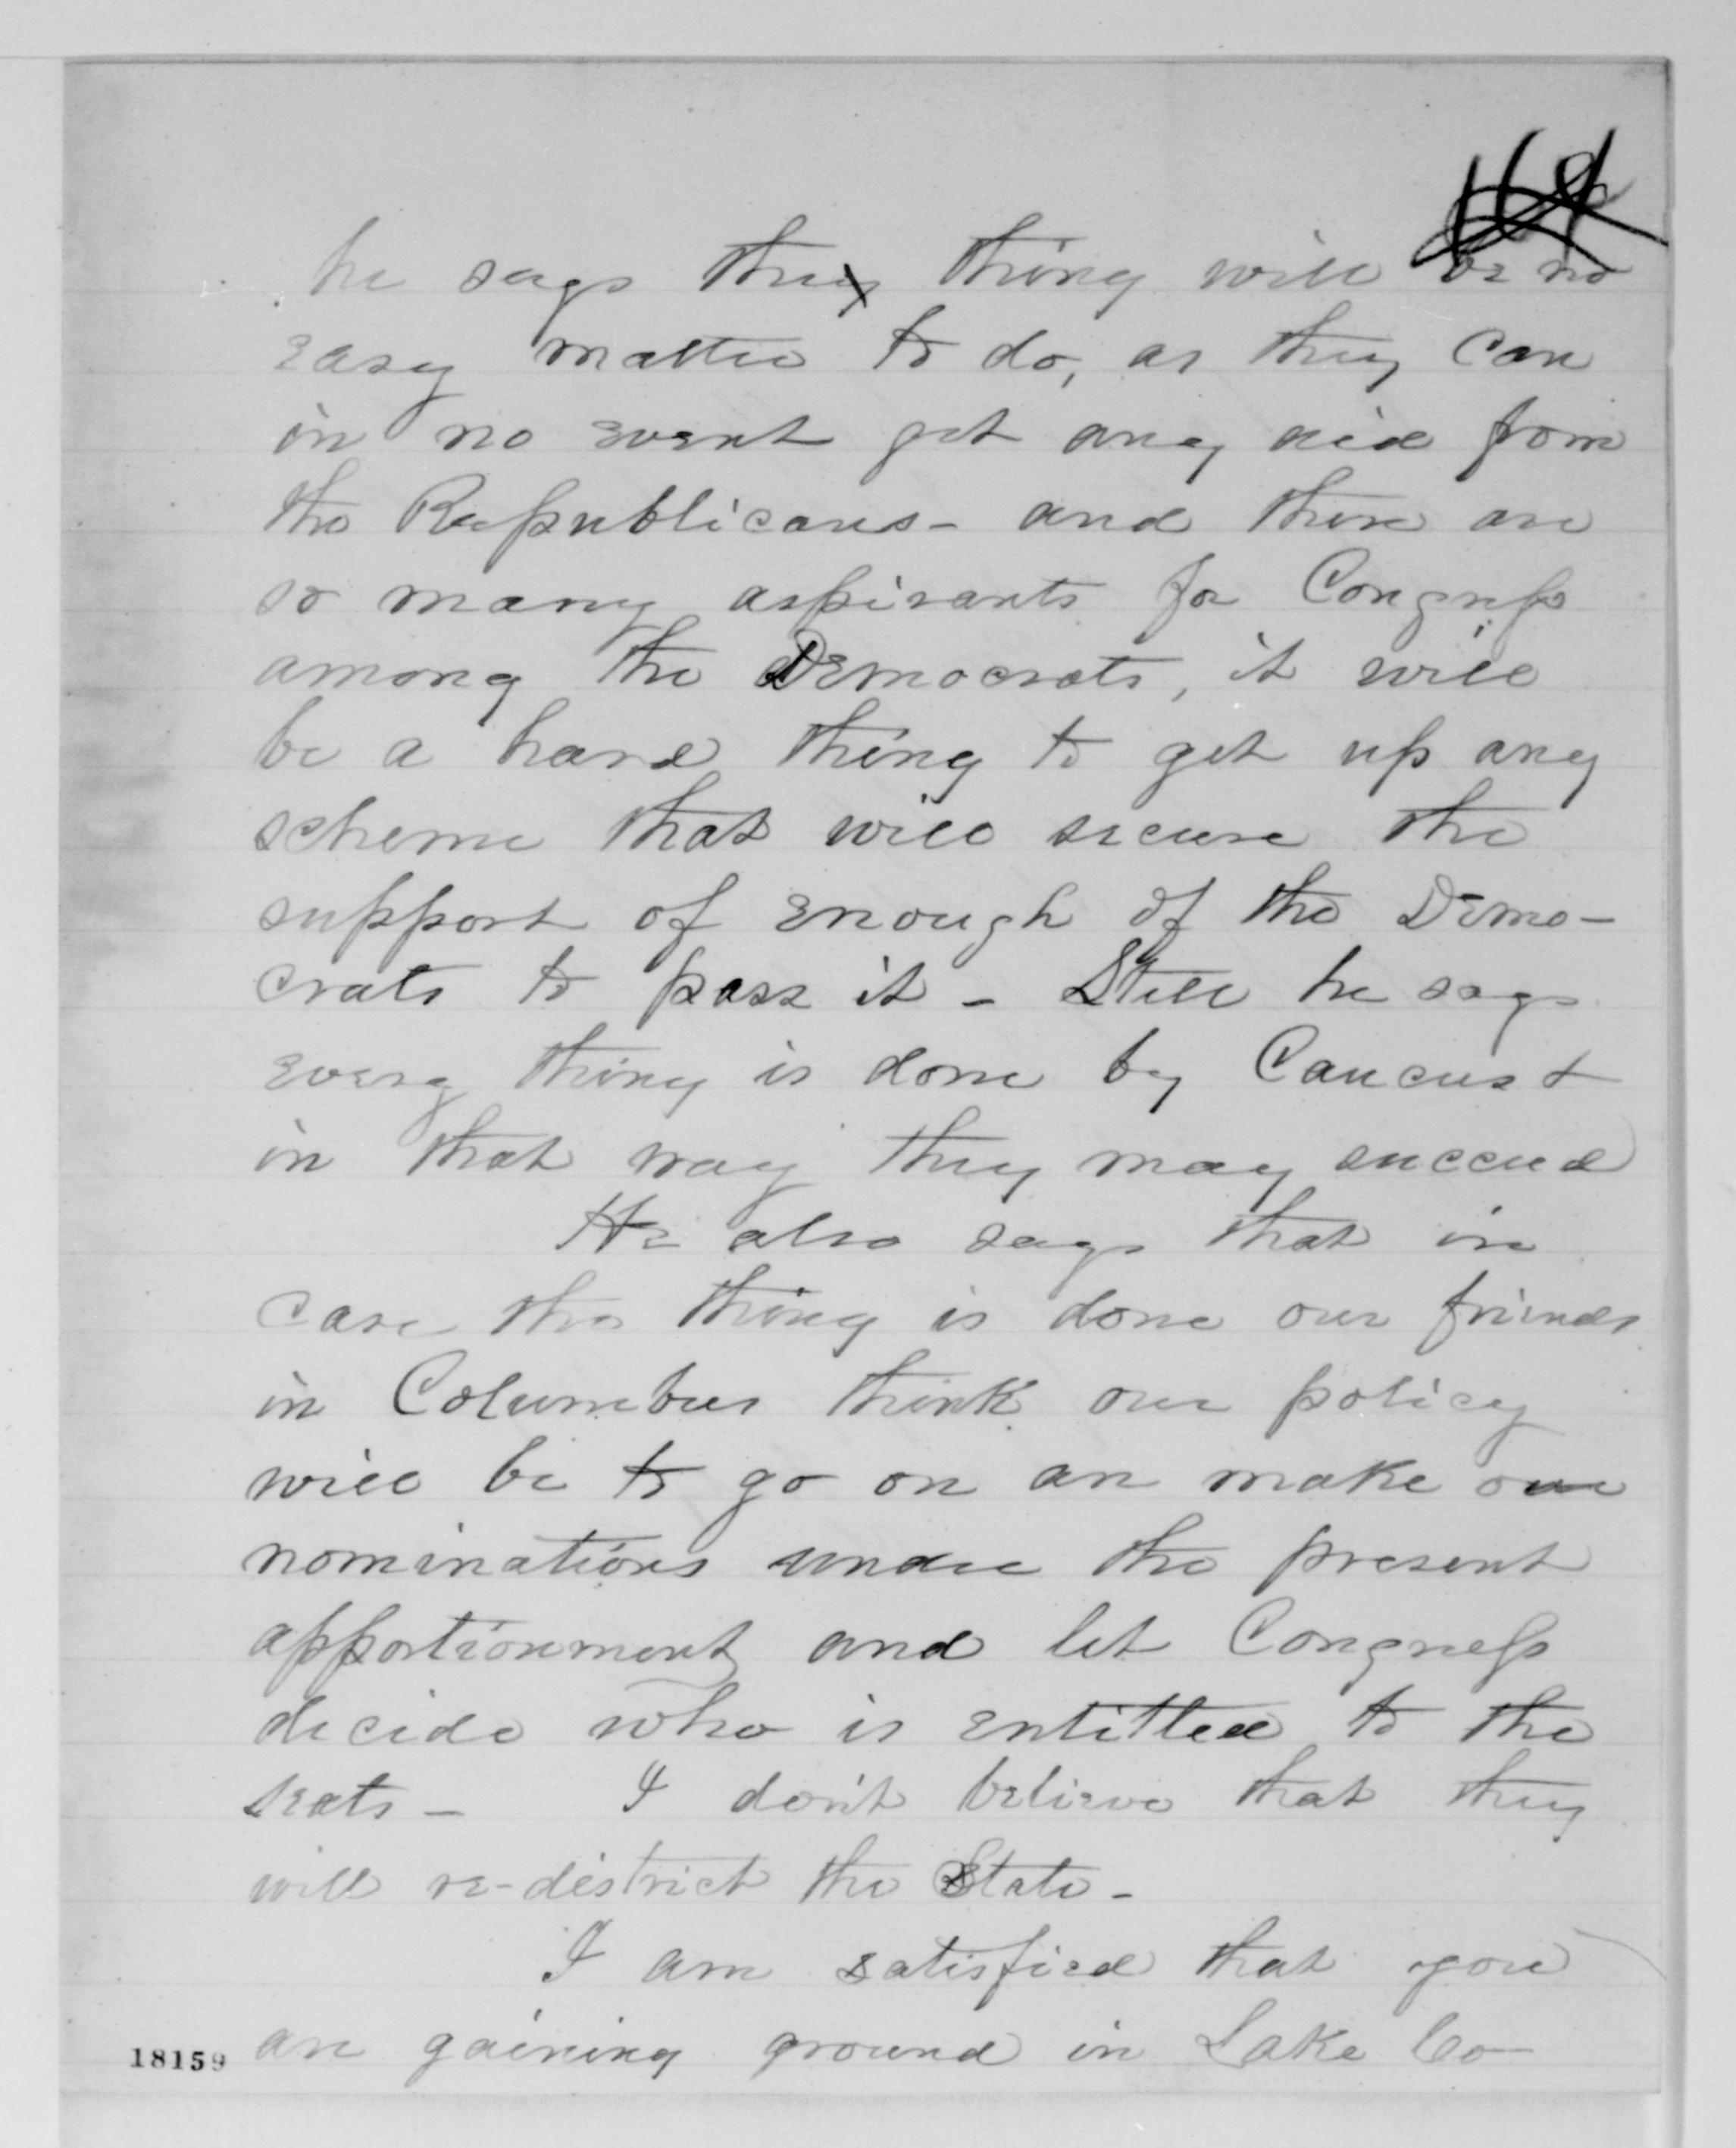 he says the thing will be no
easy matter to do, as they can
in no event get any aid from
the Republicans - and there are
so many aspirants for Congress
among the Democrats, it will
be a hard thing to get up any
scheme that will secure the
support of enough of the Demo-
crats to pass it - Still he says
every thing is done by Caucus &
in that way they may succeed
He also says that in
case the thing is done our friends
in Columbus think our policy
will be to go on an make our
nominations under the present
apportionment and let Congress
decide who is entitled to the
seats - I don't believe that they
will re-district the State -
I am satisfied that you
are gaining ground in Lake Co
18159